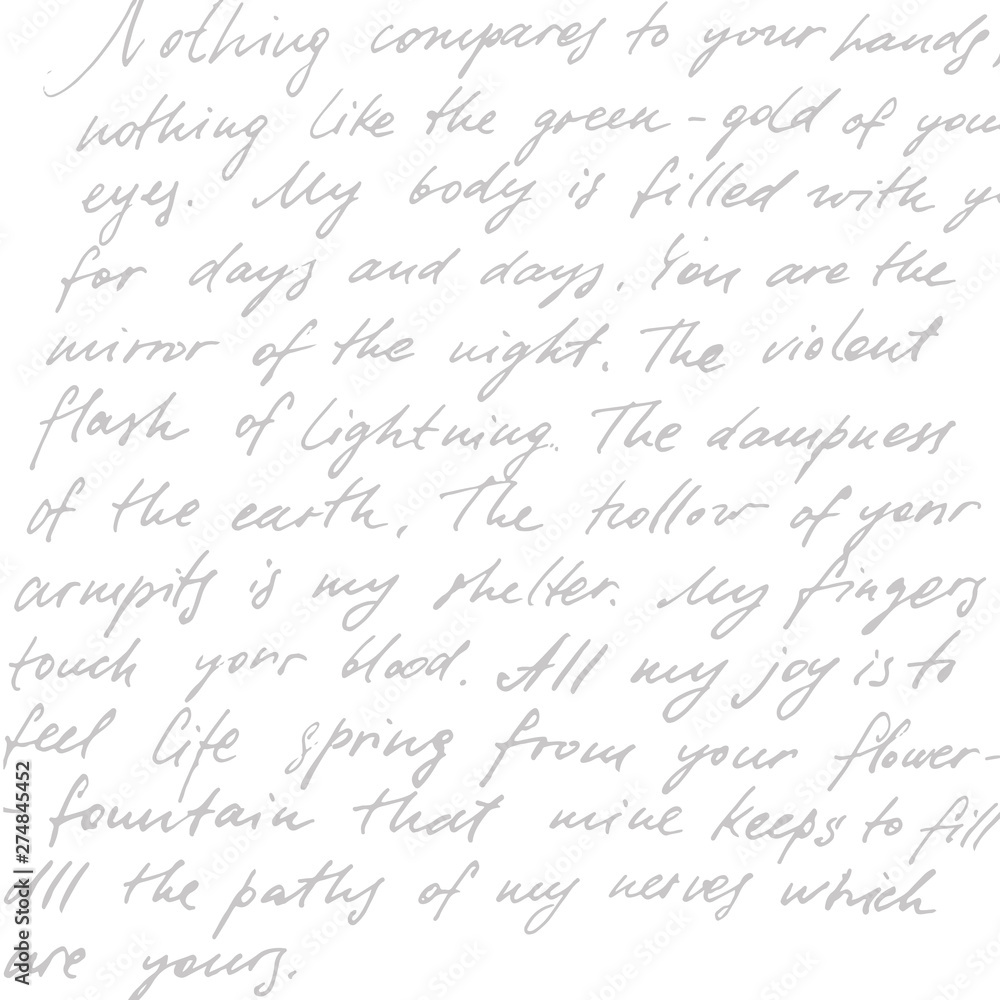 Nothing compares to your hands,
nothing like the green-gold of you
eyes. My body is filled with y
for days and days. You are the
mirror of the night. The violent
flash of lightning. The dampness
of the earth. The hollow of your
armpits is my shelter. My fingers
touch your blood. All my joy is to
feel life spring from your flower-
fountain that mine keeps to fill
all the paths of my nerves which
are yours.
Adobe Stock | #274845452